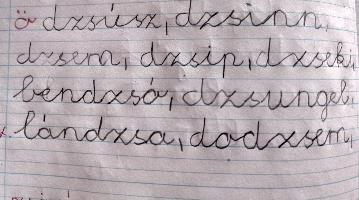 ö dzsúsz, dzsinn,
dzsem, dzsip, dzsek,
bendzsó, dzsungel,
lándzsa, dodzsem,